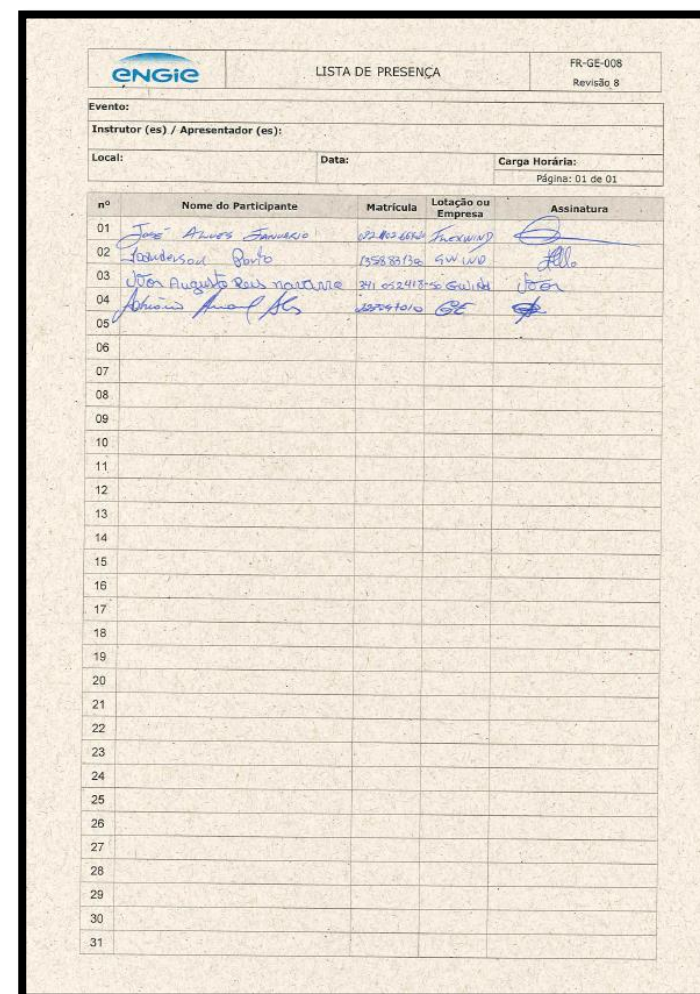 ENGIE
LISTA DE PRESENÇA
FR-GE-008
Revisão 8
Evento:
Instrutor (es) / Apresentador (es):
Local: Data: Carga Horária:
Página: 01 de 01
nº Nome do Participante Matrícula Lotação ou Empresa Assinatura
01 José Alves Januário FLEXWIND
02 Porto GWIND
03 João Augusto Reis 341 052418-50 GWIND João
04 GE
05
06
07
08
09
10
11
12
13
14
15
16
17
18
19
20
21
22
23
24
25
26
27
28
29
30
31